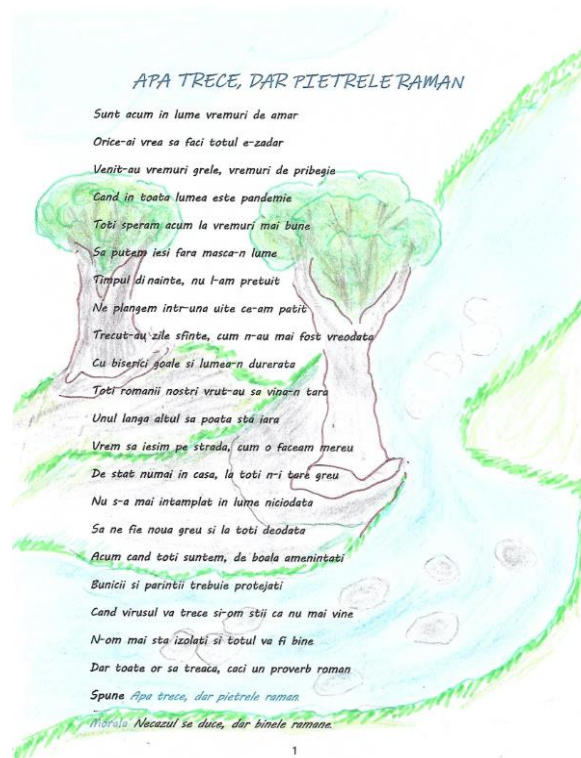 APA TRECE, DAR PIETRELE RAMAN
Sunt acum in lume vremuri de amar
Orice-ai vrea sa faci totul e-zadar
Venit-au vremuri grele, vremuri de pribegie
Cand in toata lumea este pandemie
Toti speram acum la vremuri mai bune
Sa putem iesi fara masca-n lume
Timpul dinainte, nu l-am pretuit
Ne plangem intr-una uite ce-am patit
Trecut-au zile sfinte, cum n-au mai fost vreodata
Cu biserici goale si lumea-n durerata
Toti romanii nostri vrut-au sa vina-n tara
Unul langa altul sa poata sta iara
Vrem sa iesim pe strada, cum o faceam mereu
De stat numai in casa, la toti n-i tare greu
Nu s-a mai intamplat in lume niciodata
Sa ne fie noua greu si la toti deodata
Acum cand toti suntem, de boala amenintati
Bunicii si parintii trebuie protejati
Cand virusul va trece si-om stii ca nu mai vine
N-om mai sta izolati si totul va fi bine
Dar toate or sa treaca, caci un proverb roman
Spune Apa trece, dar pietrele raman.
Morala Necazul se duce, dar binele ramane.
1